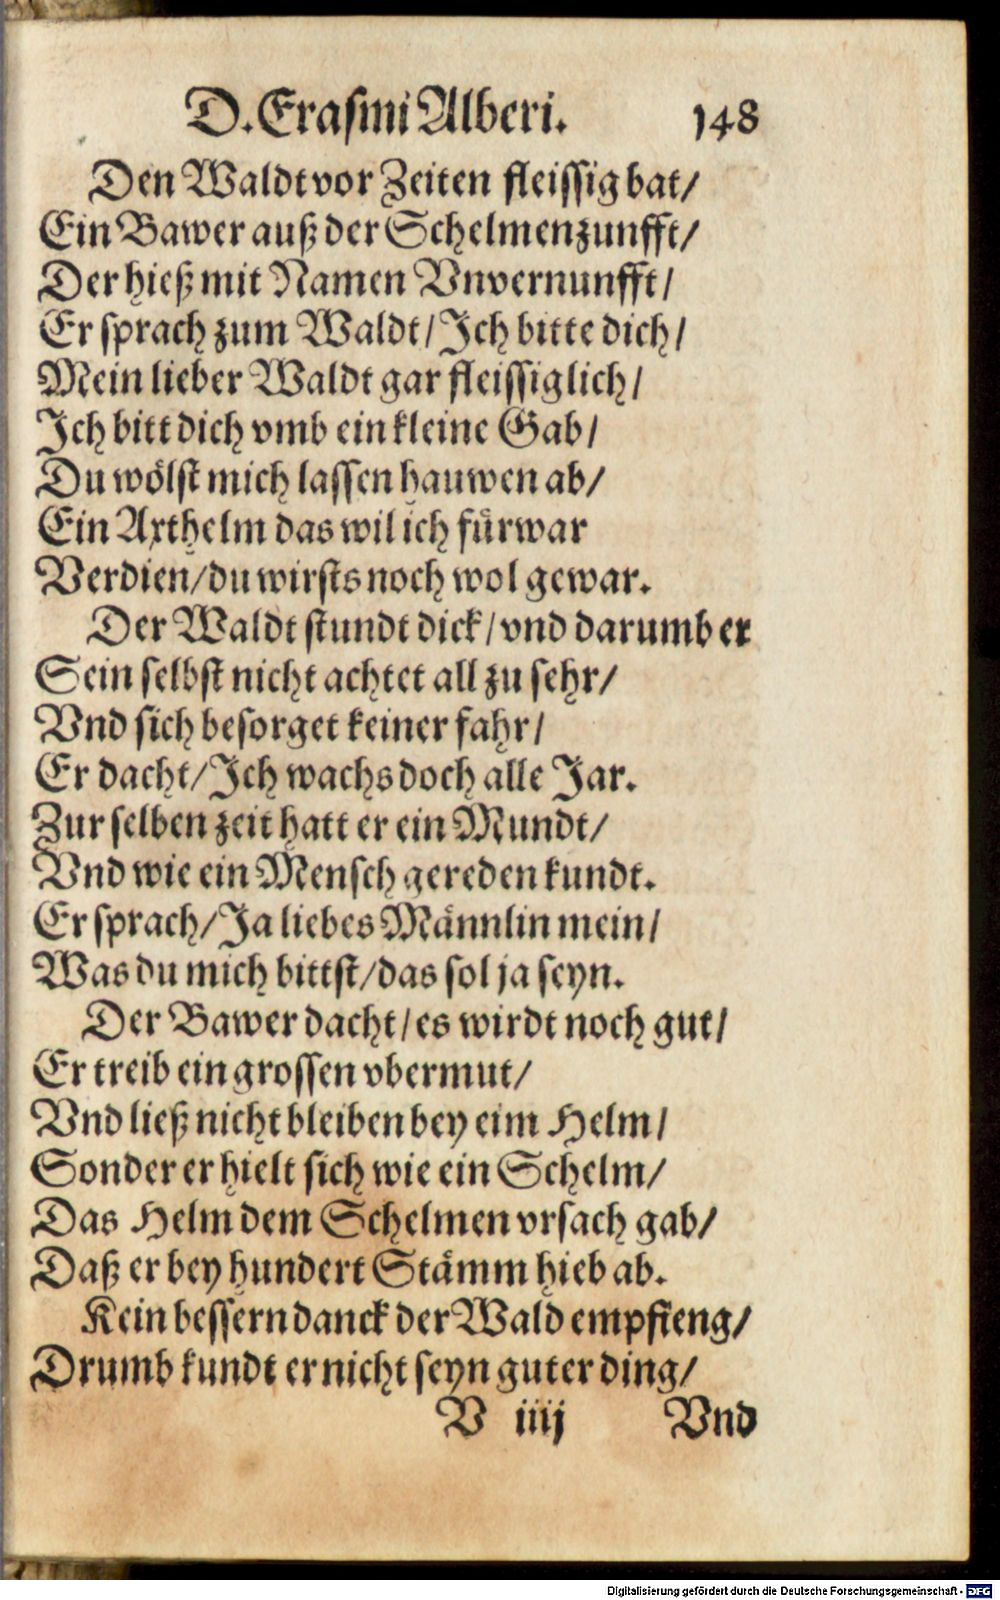 D. Erasmi Alberi. 148
Den Waldt vor Zeiten fleissig bat/
Ein Bawer auß der Schelmenzunfft/
Der hieß mit Namen Vnvernunfft/
Er sprach zum Waldt/ Ich bitte dich/
Mein lieber Waldt gar fleissiglich/
Ich bitt dich vmb ein kleine Gab/
Du wölst mich lassen hauwen ab/
Ein Axthelm das wil ich fürwar
Verdien/ du wirsts noch wol gewar.
Der Waldt stundt dick/ vnd darumb er
Sein selbst nicht achtet all zu sehr/
Vnd sich besorget keiner fahr/
Er dacht/ Ich wachs doch alle Jar.
Zur selben zeit hatt er ein Mundt/
Vnd wie ein Mensch gereden kundt.
Er sprach/ Ja liebes Männlin mein/
Was du mich bittst/ das sol ja seyn.
Der Bawer dacht/ es wirdt noch gut/
Er treib ein grossen vbermut/
Vnd ließ nicht bleiben bey eim Helm/
Sonder er hielt sich wie ein Schelm/
Das Helm dem Schelmen vrsach gab/
Daß er bey hundert Stämm hieb ab.
Kein bessern danck der Wald empfieng/
Drumb kundt er nicht seyn guter ding/
V iiij Vnd
Digitalisierung gefördert durch die Deutsche Forschungsgemeinschaft - DFG